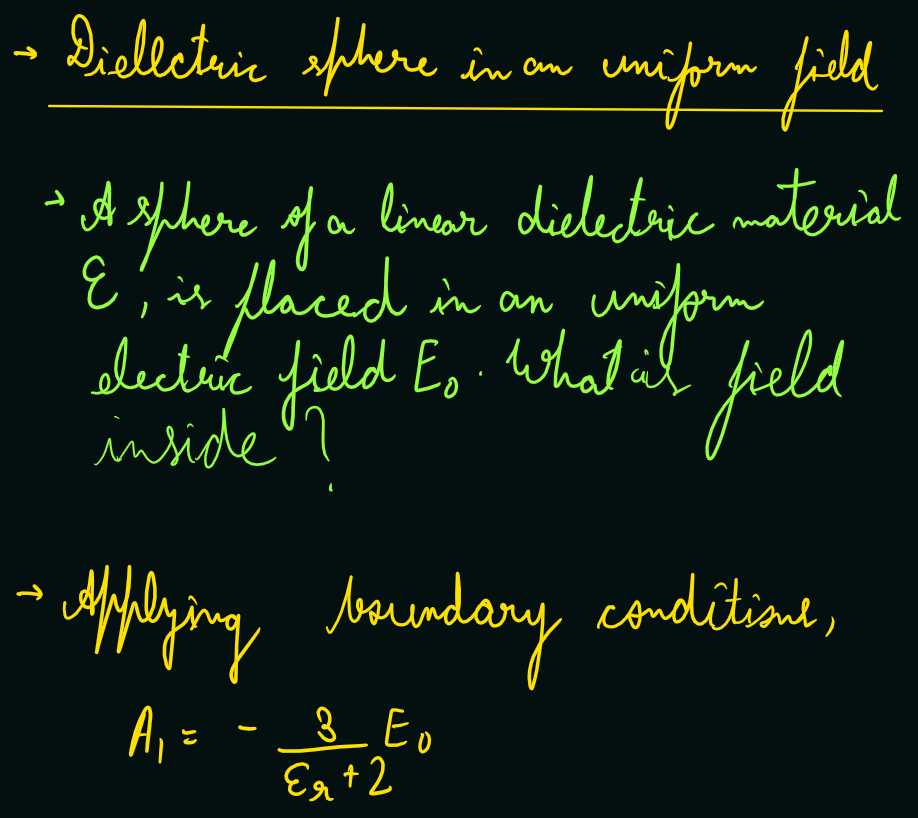 → Diellctric sphere in an uniform field
→ A sphere of a linear dielectric material
ε, is placed in an uniform
electric field E₀. What is field
inside?
→ Applying boundary conditions,
A₁ = - 3/(εr + 2) E₀